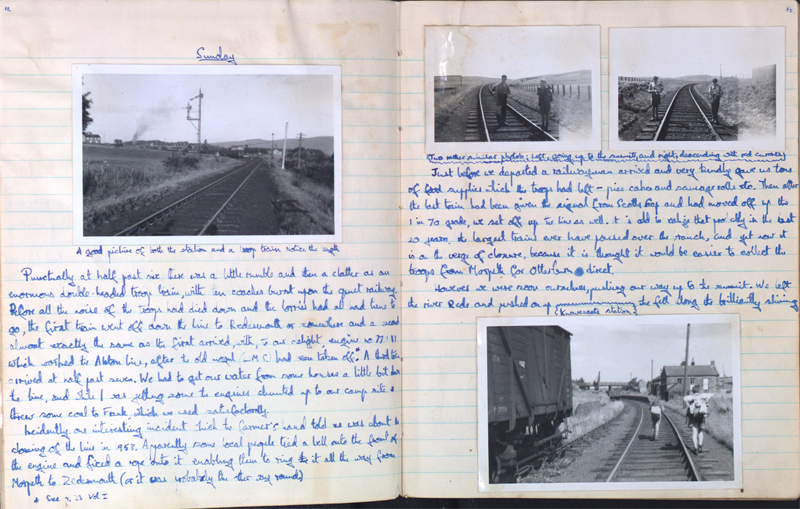 12
Sunday
A good picture of both the station and a troop train, notice the length
Punctually at half past six there was a little rumble and then a clatter as an
enormous double-headed troop train, with ten coaches burst upon the quiet railway.
Before all the noise of the troops had died down and the lorries had all had time to
go, the first train went off down the line to Redesmouth or somewhere and a second
almost exactly the same as the first arrived, with, to our delight, engine no 77011
which worked the Alston line, after the old L.M.S. had been taken off. A third train
arrived at half past seven. We had to get our water from some houses a little bit down
the line, and while I was getting some the engines shunted up to our camp site &
threw some coal to Frank, which we used satisfactorily.
Incidently an interesting incident which the farmer's hand told us was about the
closing of the line in 1952. Apparently some local people tied a bell onto the front of
the engine and fixed a rope onto it enabling them to ring it all the way from
Morpeth to Redesmouth (or it was probably the other way round)
See p. 13 Vol I
13
Two rather similar photos; left, going up to the summit, and right, descending with red
Just before we departed a railwayman arrived and very kindly gave us tons
of food supplies which the troops had left - pies cakes and sausage rolls etc. Then after
the last train had been given the signal from Scotsgap and had moved off up the
1 in 70 grade, we set off up the line as well. It is odd to realize that probably in the last
20 years, the largest trains ever have passed over the branch, and yet now it
is on the verge of closure, because it is thought it would be easier to collect the
troops from Morpeth for Otterburn direct.
However we were soon ourselves, pushing our way up to the summit. We left
the river Rede and pushed on up the fell along the brilliantly shining
Knowesgate station